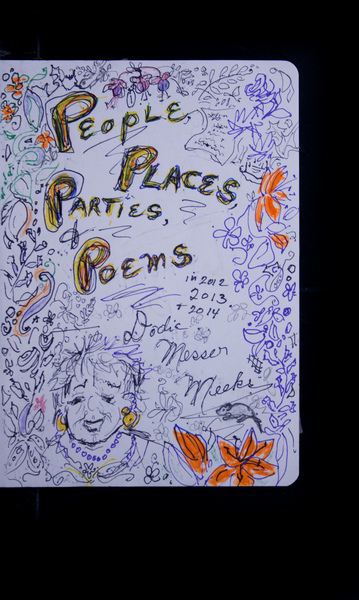 People,
Places
Parties,
& Poems
in 2012
2013
+ 2014
Dodie
Messer
Meeks